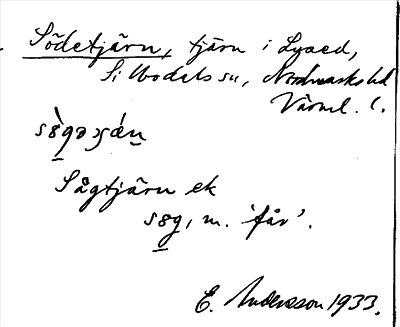 Södetjärn, tjärn i Lysed,
Sillbodals sn, Nordmarks hd
Värml. l.
sɵ̀gəɕǽṇ
Sågtjärn ek
sɵg, m. 'får'.
E. Andersson 1933.